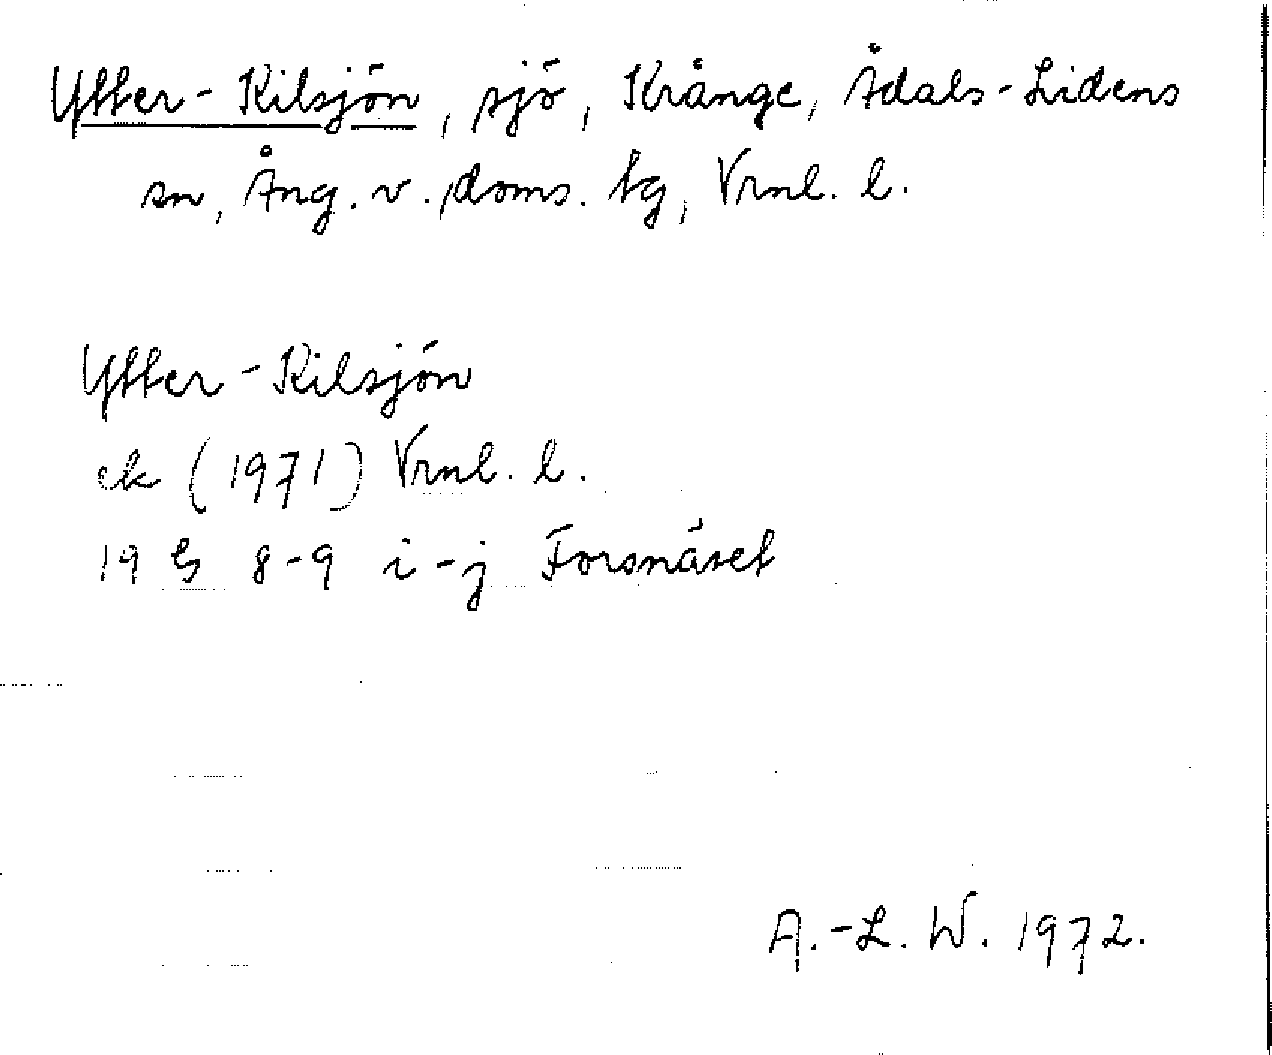 Ytter-Kilsjön, sjö, Krånge, Ådals-Lidens
sn, Ång. v. doms. tg, Vrnl. l.
Ytter-Kilsjön
ek (1971) Vrnl. l.
19 G 8-9 i-j Forsnäset
A.-L. W. 1972.